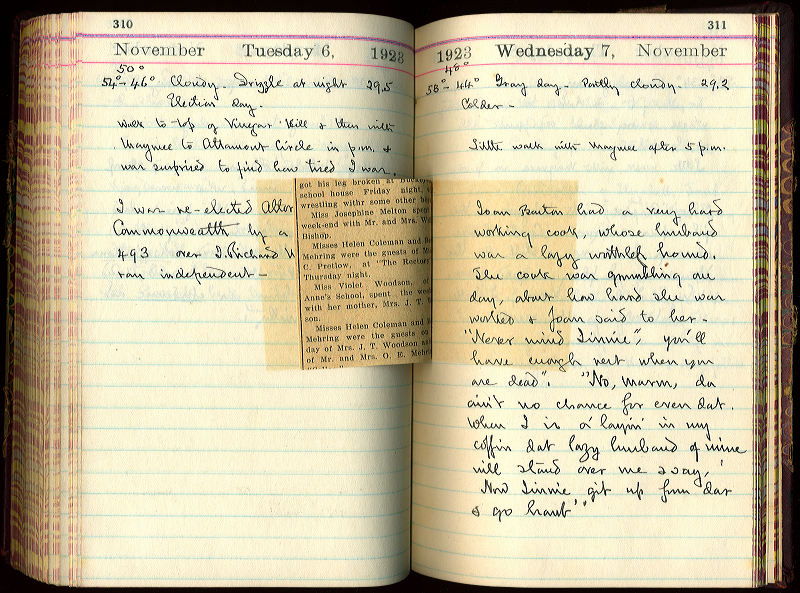 310
November Tuesday 6, 1923
50°
54°-46° Cloudy. Drizzle at night 29.5
Election day.
walk to top of Vinegar Hill & then with
Maynee to Altamont Circle in p.m. &
was surprised to find how tired I was.
I was re-elected Attor
Commonwealth by a
493 over J. Richard W
ran independent—
got his leg broken at Buckin
school house Friday night,
wrestling withr some other bo
Miss Josephine Melton spent
week-end with Mr. and Mrs. W
Bishop.
Misses Helen Coleman and
Mehring were the guests of M
C. Pretlow, at "The Rectory
Thursday night.
Miss Violet Woodson, of
Anne's School, spent the week
with her mother, Mrs. J. T.
son.
Misses Helen Coleman and
Mehring were the guests on
day of Mrs. J. T. Woodson and
of Mr. and Mrs. O. E. Mehr
311
1923 Wednesday 7, November
48°
58°-44° Gray day. Partly cloudy. 29.2
Colder—
Little walk with Maynee after 5 p.m.
Joan Benton had a very hard
working cook, whose husband
was a lazy worthless hound.
The cook was grumbling one
day, about how hard she was
worked & Joan said to her—
"Never mind Linnie", you'll
have enough rest when you
are dead". "No, marm, da
ain't no chance for even dat.
When I is a layin' in my
coffin dat lazy husband of mine
will stand over me & say,
'Now Linnie git up from dar
& go